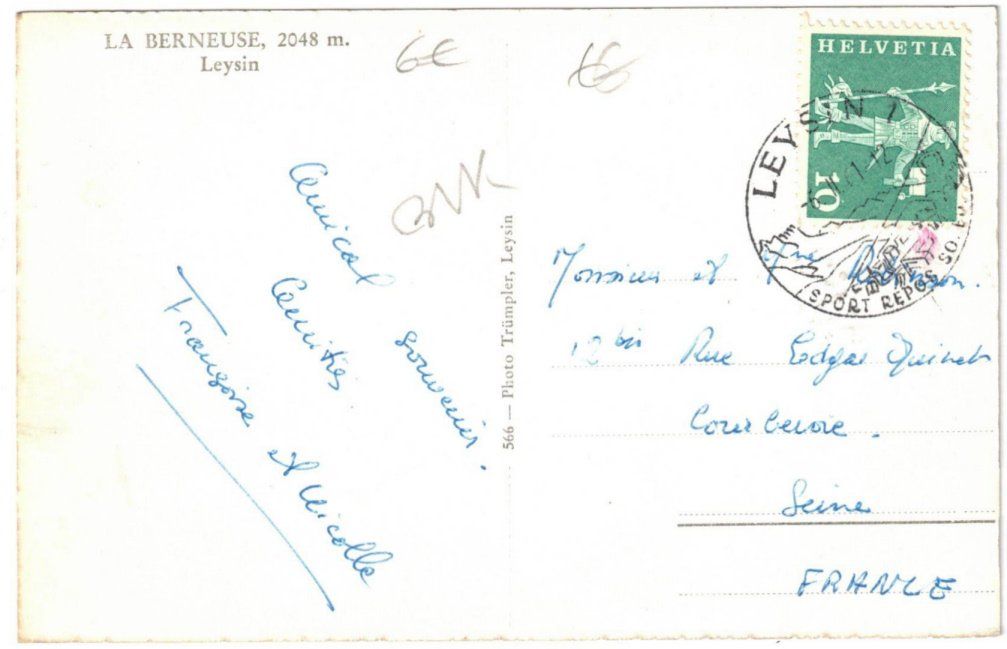 LA BERNEUSE, 2048 m.
Leysin
6€
HELVETIA
10
LEYSIN 1
SPORT REPOS SO
566 — Photo Trümpler, Leysin
Amical souvenir.
Amitiés.
Françoise et Nicolle
Monsieur et Mme
12 bis Rue Edgar Quinet
Courbevoie.
Seine
FRANCE